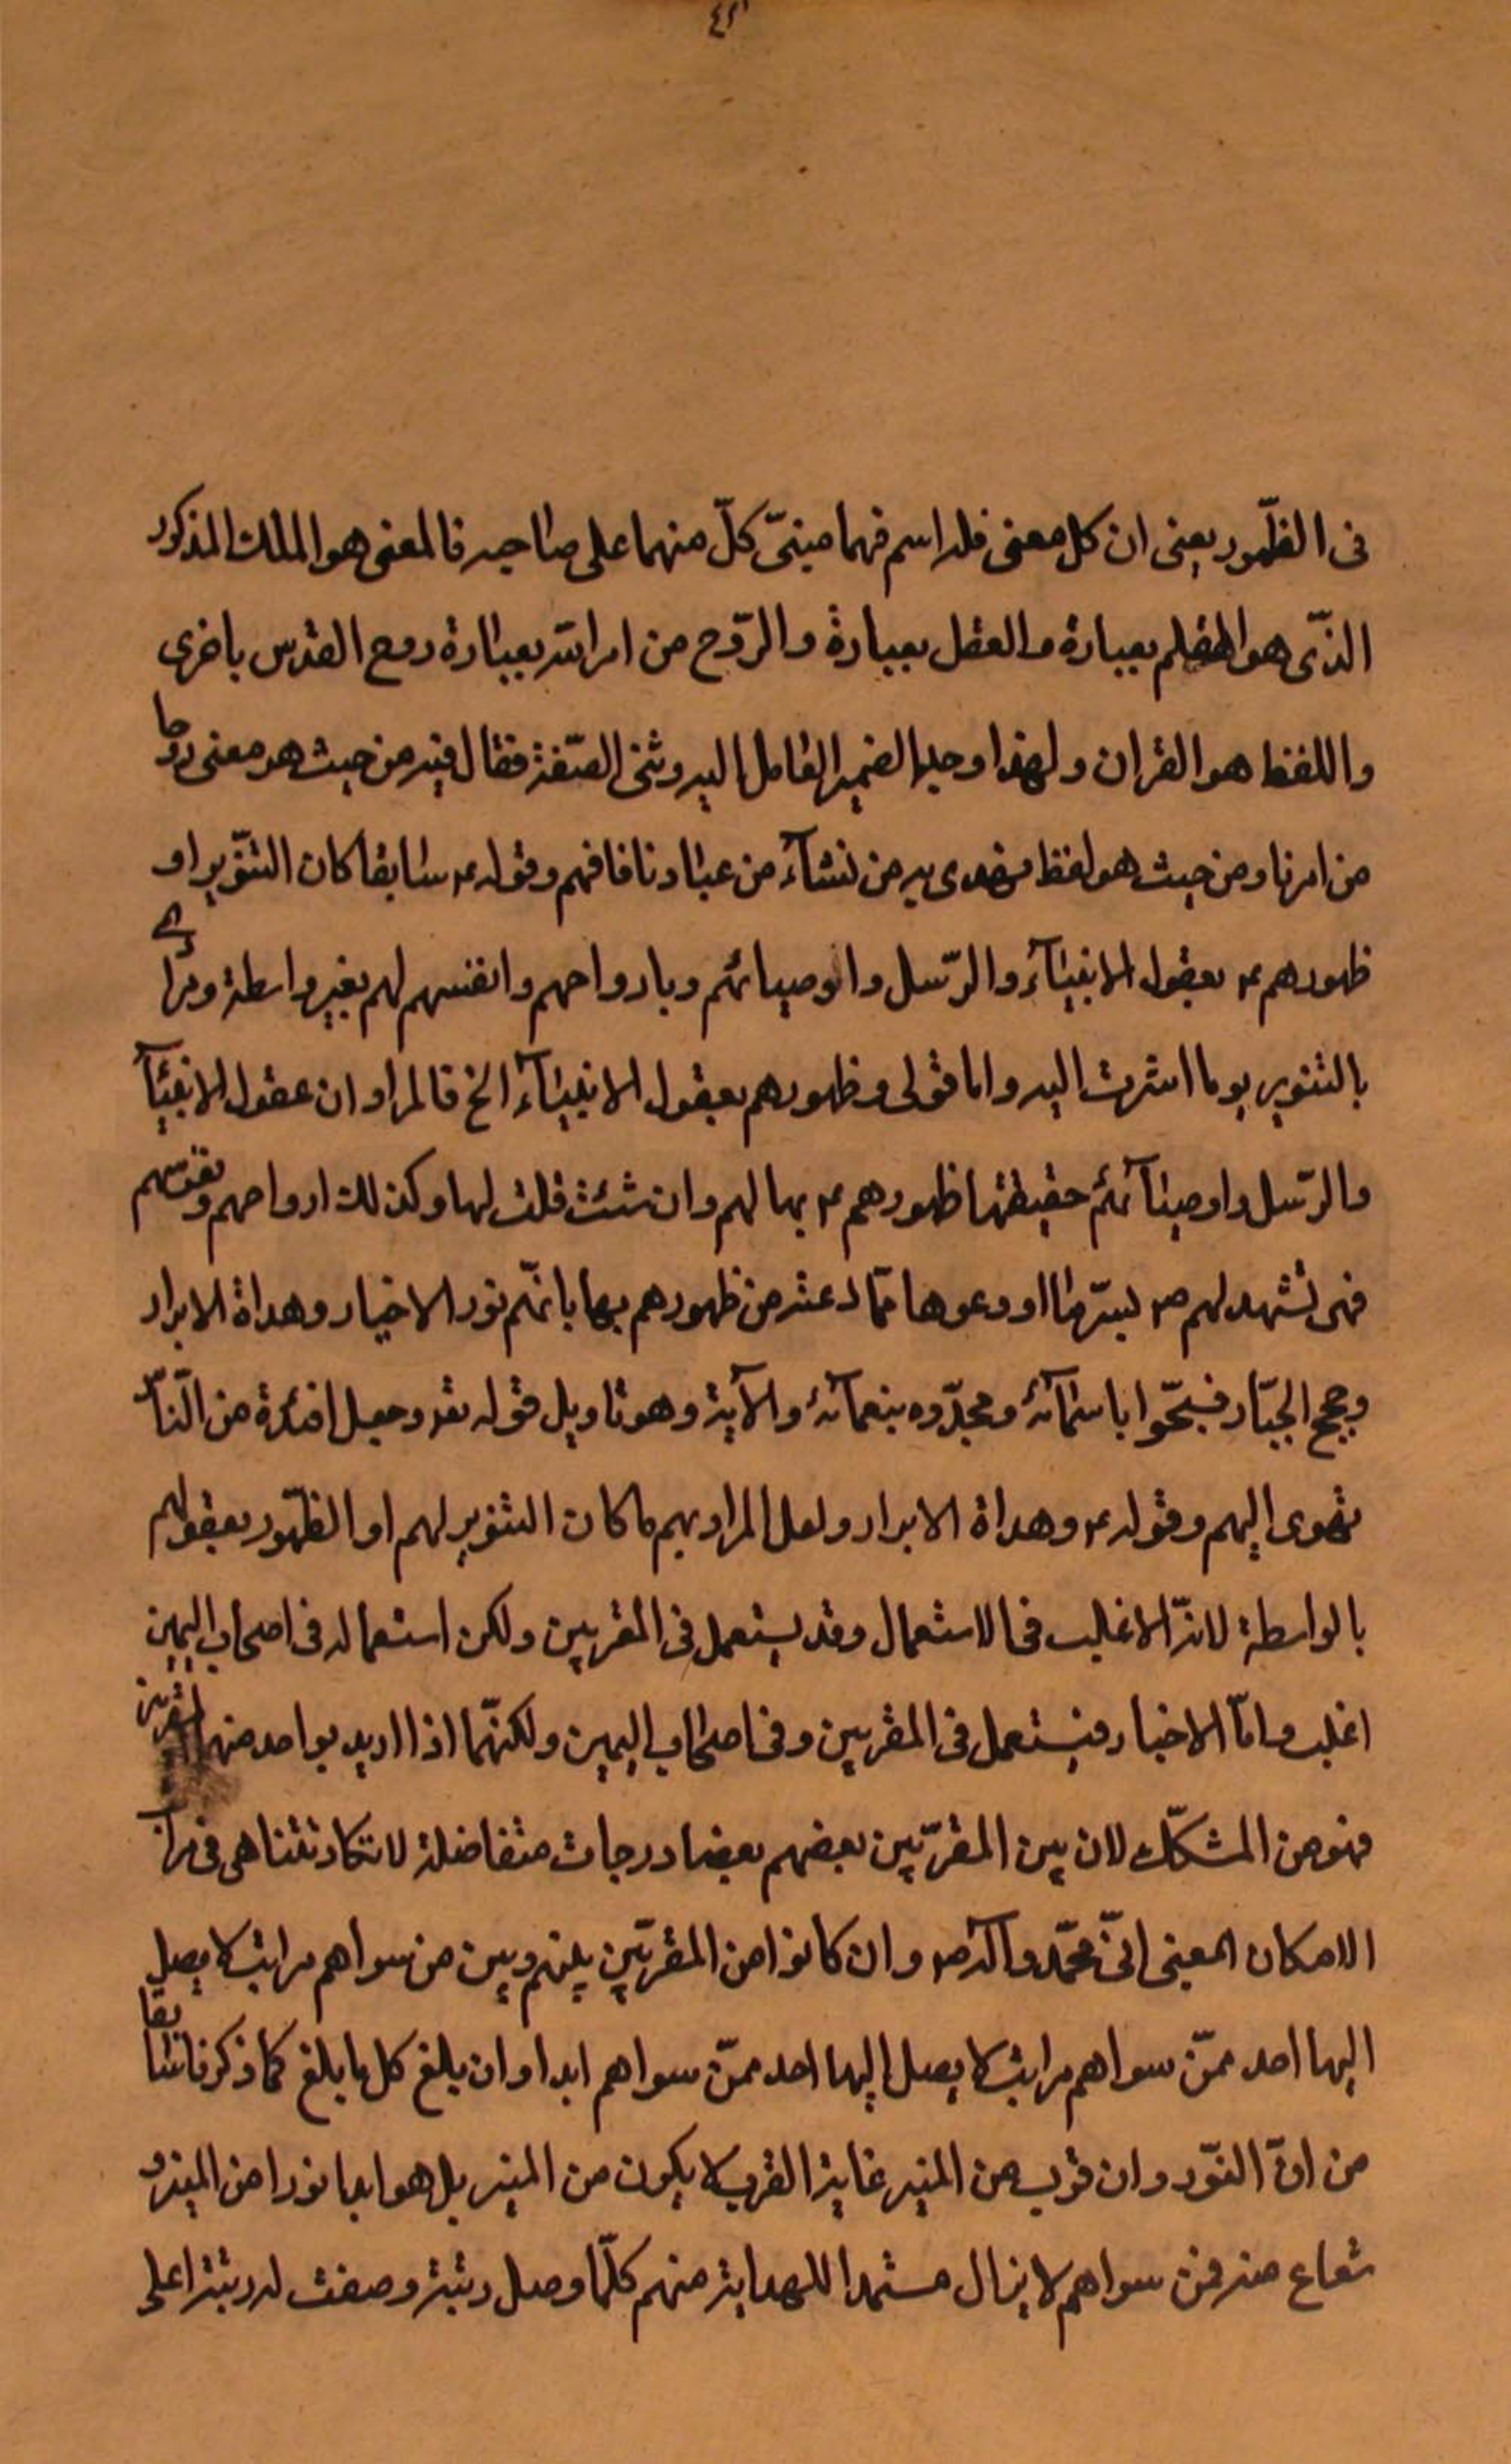 ٤٢
فى الظّهور يعنى ان كل معنى فله اسم فهما مبنىّ كلّ منهما على صاحبه فالمعنى هو الملك المذكور
الذّى هو القلم بعبارة والعقل بعبارة والرّوح من امر الله بعبارة روح القدس باخرى
واللفظ هو القران ولهذا وحد الضمير العامل اليه وثنى الصّفة فقال فيه من حيث هو معنى روحا
من امرنا ومن حيث هو لفظ نهدى به من نشآء من عبادنا فافهم وقوله ع سابقا كان التنوير او
ظهورهم ع بعقول الانبيآء والرّسل واوصيائهم وبارواحهم وانفسهم لهم بغير واسطة ومرادى
بالتنوير بوما اشرت اليه واما قولى وظهورهم بعقول الانبيآء الخ فالمراد ان عقول الانبيآء
والرّسل واوصيآئهم حقيقتها ظهورهم ع بها لهم وان شئت قلت لها وكذلك ارواحهم ونفوسهم
فهى تشهد لهم ص بسرّ ما اودعوها ممّا دعته من ظهورهم بها بانّهم نور الاخيار وهداة الابرار
وحجج الجبّار فسبّحوا باسمآئه ومجّدوه بنعمآئه والآية وهو تاويل قوله تع وجعل افئدة من النّاس
تهوى اليهم وقوله ع وهداة الابرار ولعل المراد بهم ما كان التنوير لهم او الظّهور بعقولهم
بالواسطة لانّه الاغلب فى الاستعمال وقد يستعمل فى المقربين ولكن استعماله فى اصحاب اليمين
اغلب وامّا الاخيار فيستعمل فى المقربين وفى اصحاب اليمين ولكنّهما اذا اريد بواحد منهما المقربين
فهو من المشكّك لان بين المقرّبين بعضهم بعضا درجات متفاضلة لا تكاد تتناهى فى مراتب
الامكان المعنى انّ محمّد وآله ص وان كانوا من المقرّبين بينهم وبين من سواهم مراتب لا يصل
اليها احد ممّن سواهم مراتب لا يصل اليها احد ممّن سواهم ابدا وان بلغ كل ما بلغ كما ذكرنا سابقا
من انّ النّور وان قرب من المنير غاية القرب لا يكون من المنير بل هو ابدا نورا من المنير و
شعاع منه فمن سواهم لا يزال مستمدا للهداية منهم كلّما وصل رتبة وصفت له رتبة اعلى